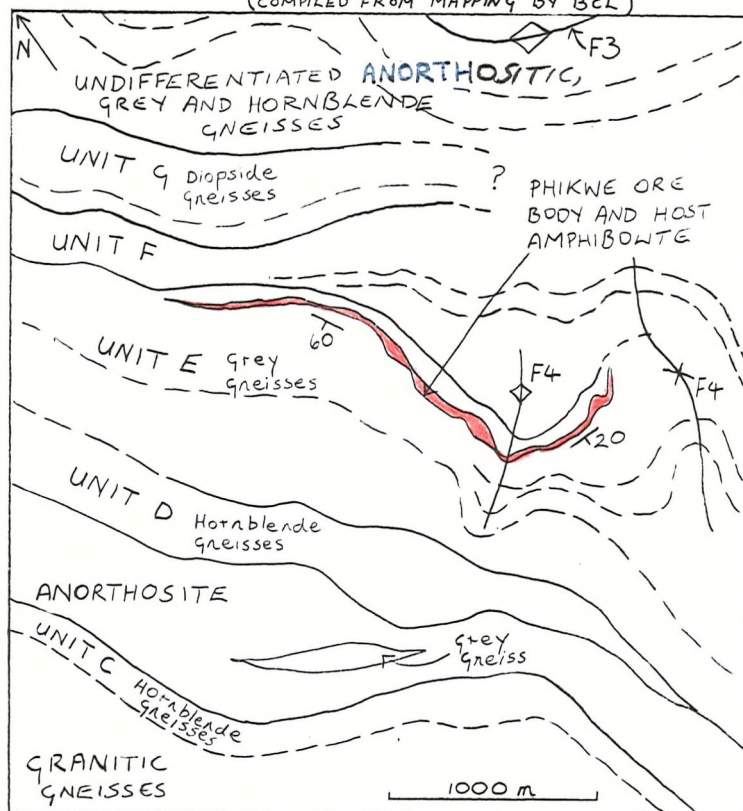 (COMPILED FROM MAPPING BY BCL)
N
F3
UNDIFFERENTIATED ANORTHOSITIC,
GREY AND HORNBLENDE
GNEISSES
UNIT G Diopside
Gneisses
?
PHIKWE ORE
BODY AND HOST
AMPHIBOLITE
UNIT F
60
UNIT E Grey
Gneisses
F4
F4
20
UNIT D Hornblende
Gneisses
ANORTHOSITE
Grey
Gneiss
F
UNIT C Hornblende
Gneisses
GRANITIC
GNEISSES
1000 m